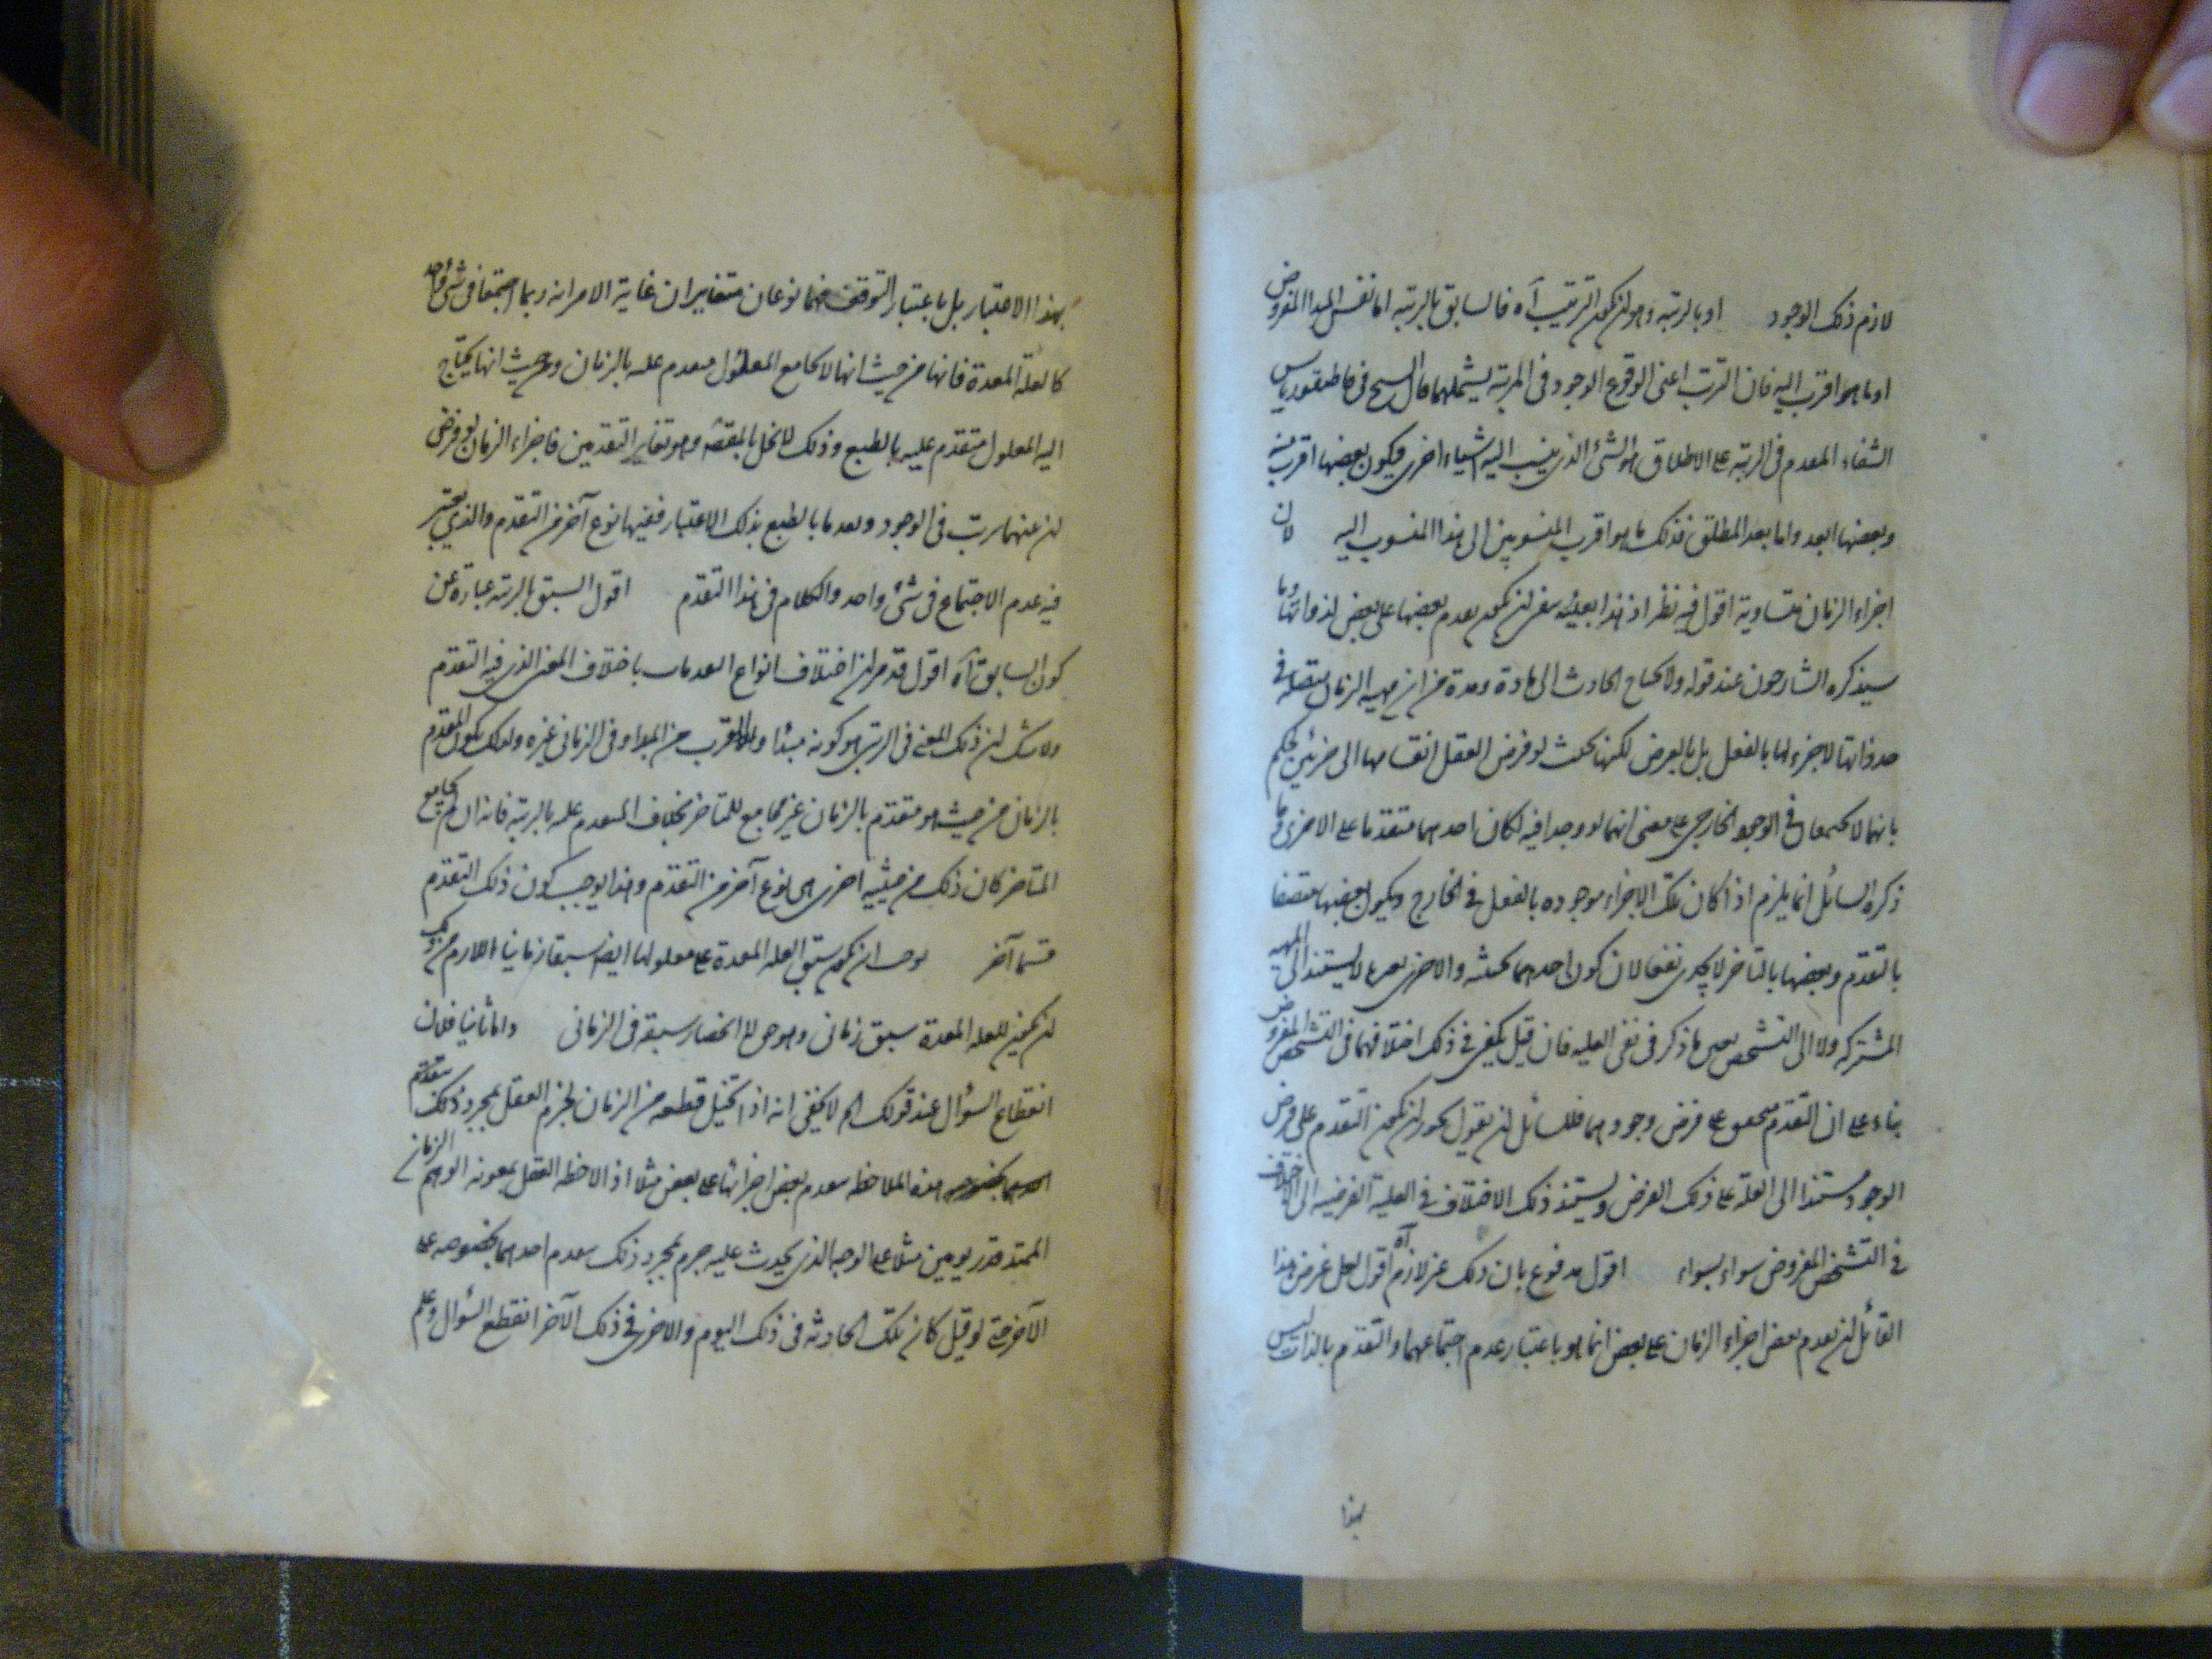 لازم ذلك الوجود او بالرتبة وهو ان يكون الترتيب آه فالسابق بالرتبة اما نفس المبدا المفروض
او ما هو اقرب اليه فان الترتب اعنى الوقوع الوجود فى المرتبة يشملهما قال الشيخ فى قاطيقورياس
الشفاء المتقدم فى الرتبة على الاطلاق هو الشئ الذى ينسب اليه اشياء اخرى فيكون بعضها اقرب منه
وبعضها ابعد واما بعد المطلق فذلك ما هو اقرب المنسوبين الى هذا المنسوب اليه لان
اجزاء الزمان متساوية اقول فيه نظر اذ هذا بعينه ان يكون تقدم بعضها على بعض لذواتها وما
سيذكره الشارحون عند قوله ولا يحتاج الحادث الى مادة ومدة من ان مهية الزمان متصلة فى
حد ذاتها لا جزء لها بالفعل بل بالعرض لكنها بحيث لو فرض العقل انقسامها الى جزئين يحكم
بانهما لا يجتمعان فى الوجود الخارجى على معنى انهما لو وجدا فيه لكان احدهما متقدما على الاخرى فما
ذكره السائل انما يلزم اذا كان تلك الاجزاء موجوده بالفعل فى الخارج ويكون بعضها متصفا
بالتقدم وبعضها بالتاخر لا يجدى نفعا لان كون احدهما بحيث والاخرى لا يستند الى المهية
المشتركه ولا الى التشخص بعين ما ذكر فى نفى العلية فان قيل يكفى فى ذلك اختلافهما فى التشخص المفروض
بناء على ان التقدم متحقق على فرض وجودهما فللسائل ان يقول يجوز ان يكون التقدم على فرض
الوجود مستندا الى العلة على ذلك الفرض ويستند ذلك الاختلاف فى العلية الفرضيه الى الاختلاف
فى التشخص المفروض سواء بسواء اقول مدفوع بان ذلك غير لازم آه اقول لعل غرض هذا
القائل ان تقدم بعض اجزاء الزمان على بعض انما هو باعتبار عدم اجتماعهما والتقدم بالذات ليس
بهذا
بهذا الاعتبار بل باعتبار التوقف فهما نوعان متغايران غاية الامر انه ربما اجتمعا فى شئ واحد
كالعلة المعدة فانها من حيث انها لا يجامع المعلول متقدم عليه بالزمان ومن حيث انها يحتاج
اليه المعلول متقدم عليه بالطبع وذلك لا يخل بالمقصود وهو تغاير التقدمين فاجزاء الزمان لو فرض
ان بينهما ترتب فى الوجود وتقدما بالطبع بذلك الاعتبار ففيها نوع آخر من التقدم والذى يعتبر
فيه عدم الاجتماع فى شئ واحد والكلام فى هذا التقدم اقول السبق بالرتبة عبارة عن
كون السابق آه اقول قد مر ان اختلاف انواع التقدمات باختلاف المعنى الذى فيه التقدم
ولا شك ان ذلك المعنى فى الرتبى هو كونه مبدا او القرب من المبدا وفى الزمانى غيره ولذلك يكون المتقدم
بالزمان من حيث هو متقدم بالزمان غير مجامع للمتاخر بخلاف المتقدم عليه بالرتبة فانه ان لم يجامع
المتاخر كان ذلك من حيثية اخرى هى نوع آخر من التقدم وهذا يوجب كون ذلك التقدم
قسما آخر ان يكون سبق العلة المعدة على معلولها ايضا سبقا زمانيا اللازم
ان يكون للعلة المعدة سبق زمانى وهو حق لا انحصار سبقه فى الزمانى واما ثانيا فلان
انقطاع السؤال عند قولك لا يخفى انه اذا تخيل قطعه من الزمان يجزم العقل بمجرد ذلك بتقدم
هذه الملاحظه بتقدم بعض اجزائها على بعض مثلا اذا لاحظ العقل بمعونه الوهم الزمان
الممتد قدر يومين مثلا على الوجه الذى يحدث عليه جزم بمجرد ذلك بتقدم احدهما بخصوصه على
الآخر حتى لو قيل كان تلك الحادثه فى ذلك اليوم والاخرى فى ذلك الآخر انقطع السؤال وعلم